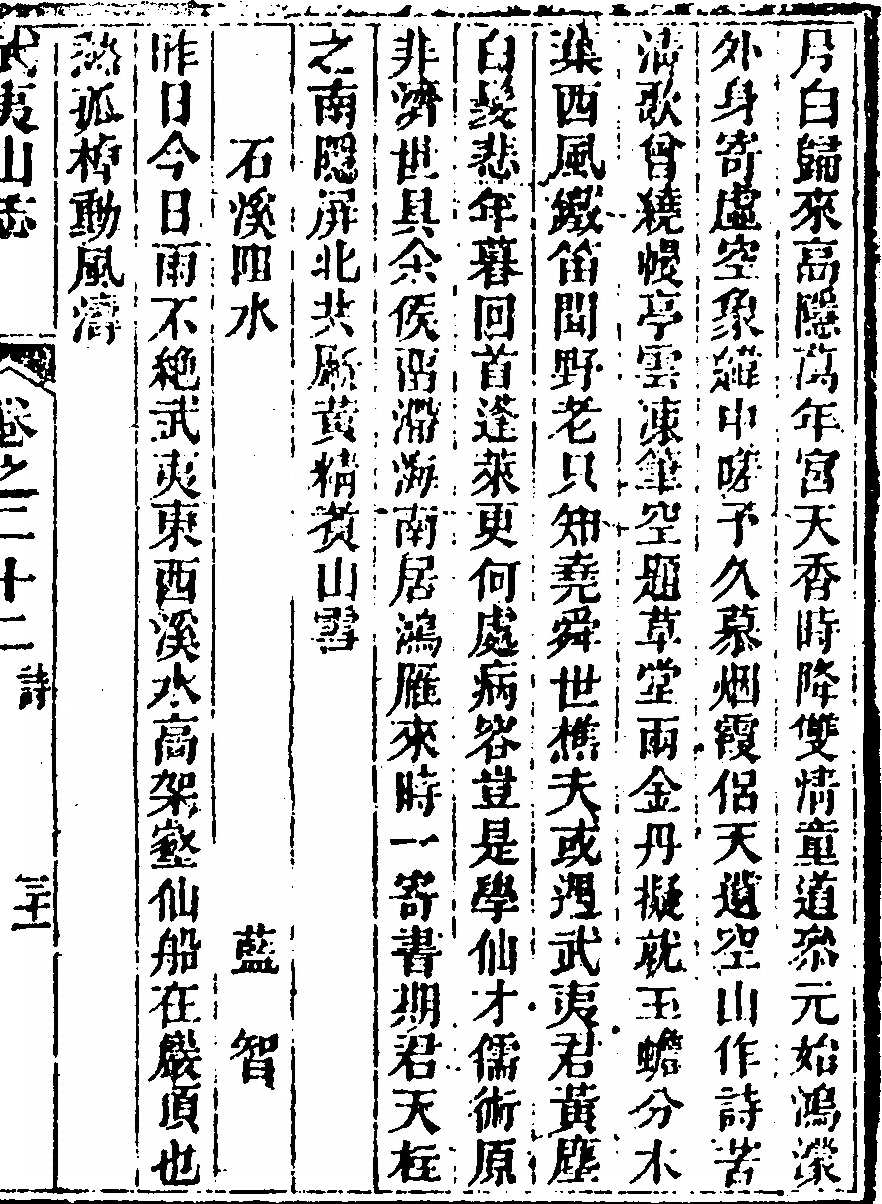 月白歸來高隱萬年宮天香時降雙情童道參元始鴻濛
外身寄虛空象罔中嗟予久慕烟霞侣天遣空山作詩苦
清歌曾繞幔亭雲凍筆空題草堂雨金丹擬就玉蟾分木
葉西風鐵笛聞野老只知堯舜世樵夫或遇武夷君黃塵
白髮悲年暮回首蓬萊更何處病容豈是學仙才儒術原
非濟世具余侯留滯海南居鴻雁來時一寄書期君天柱
之南隱屏北共劚黃精煑山雪
石溪阻水 藍智
昨日今日雨不絶武夷東西溪水高架壑仙船在巖頂也
愁孤棹動風濤
武夷山志 卷之二十二 詩 三十一